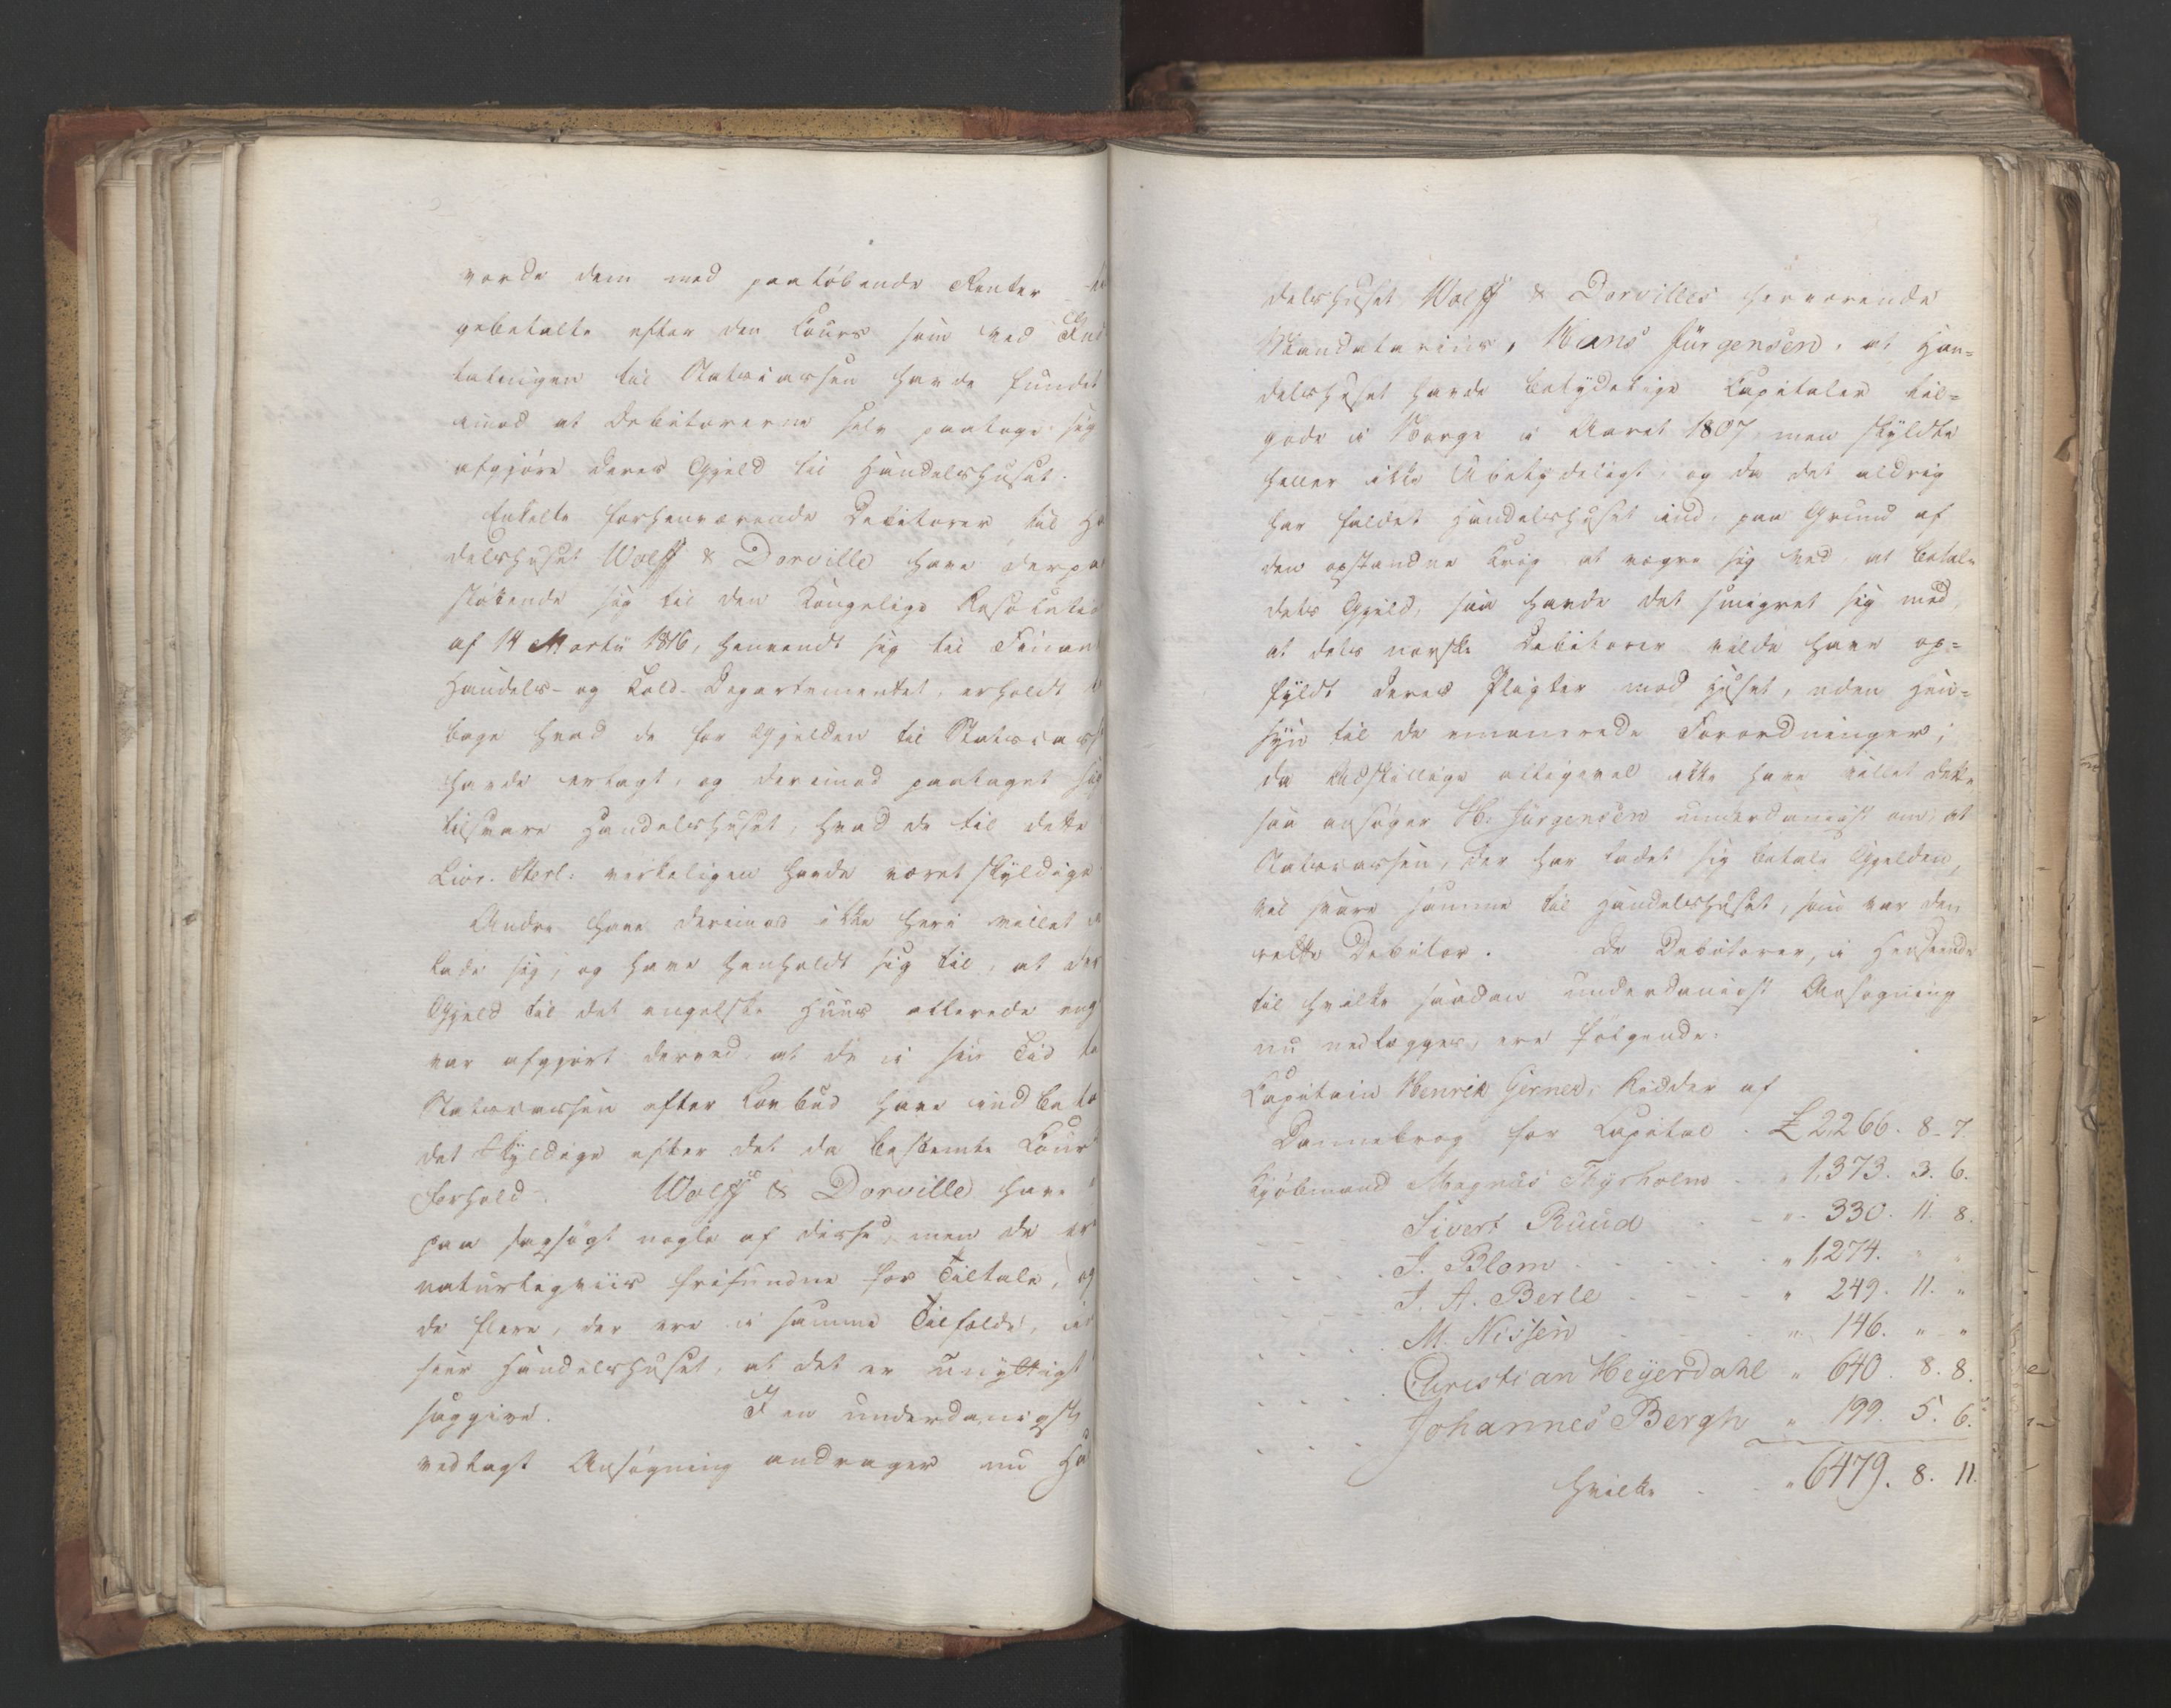 vorde dem med paaløbende Renter
gebetalte efter den Cours som ved Ind
talningen til Statscassen havde fundet
imod at Debitorerne selv paatoge sig
afgjøre deres Gjeld til Handelshuset.
Enkelte forhenværende Debitorer til Ha
delshuset Wolff & Dorville have derpaa
støttende sig til den Kongelige Resolutio
af 14 Martii 1816, henvendt sig til Finants
Handels- og Told-Departementet, erholdt
bage hvad de for Gjelden til Statscass
havde erlagt, og derimod paataget sig
tilsvare Handelshuset, hvad de til dette
Livr. Sterl. verkeligen havde været skyldige
Andre have derimod ikke heri villet
lade sig, og have henholdt sig til, at der
Gjeld til det engelske Huus allerede eng
var afgjort derved, at de i sin Tid
Statscassen efter Lovbud have indbeta
det Skyldige efter det da bestemte Cours
forhold. Wolff & Dorville have
paa sagsøgt nogle af disse, men de ere
naturligviis frifundne for Tiltale, og
de flere, der ere i samme Tilfælde, ind
seer Handelshuset, at det er unyttigt
saggive. I en underdanigst
vedlagt Ansøgning andrager nu Ha
delshuset Wolff & Dorvilles herværende
Mandatarius, Hans Jürgensen, at Han=
delshuset havde betydelige Capitaler til=
gode i Norge i Aaret 1807, men skyldte
heller ikke Ubetydeligt, og da det aldrig
har faldet Handelshuset ind, paa Grund af
den opstandne Krig at vægre sig ved at betale
dets Gjeld, saa havde det smigret sig med,
at dets norske Debitorer vilde have op=
fyldt deres Pligter mod Huset, uden Hen=
syn til de emanerede Forordninger;
da Adskillige alligevel ikke have villet dette
saa ansøger H. Jürgensen underdanigst om, at
Statscassen, der har ladet sig betale Gjelden,
vil svare samme til Handelshuset, som var den
rette Debitor. De Debitorer, i Henseende
til hvilke saadan underdanigst Ansøgning
nu nedlægges, ere følgende:
Capitain Henrik Gerner, Ridder af
Dannebrog for Capital . £ 2,266. 8. 7.
Kjøbmand Magnus Thyrholm . . " 1,373. 3. 6.
Sivert Ruud . . " 330. 11. 8.
J. Blom . . . . " 1,274. " "
J. A. Berle . . . " 249. 11. "
M. Nissen . . . " 146. " "
Christian Heyerdahl " 640. 8. 8.
Johannes Bergh " 199. 5. 6.
Hvilke . . " 6479. 8. 11.